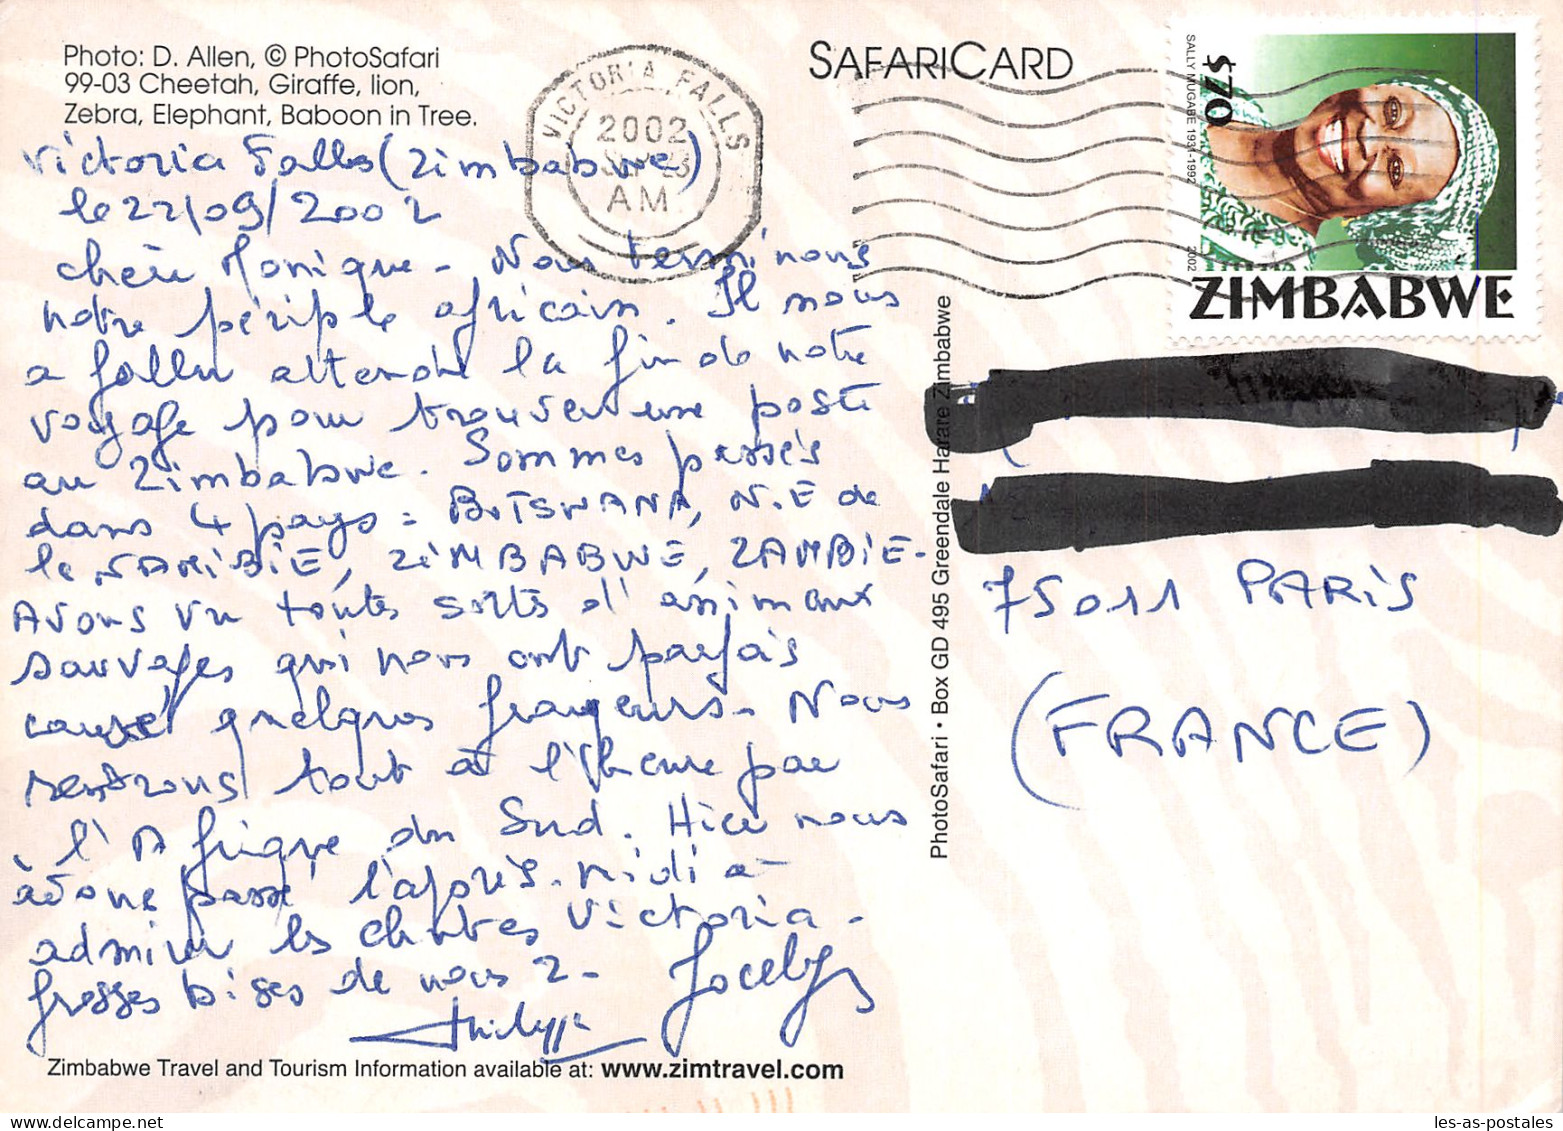 Photo: D. Allen, © PhotoSafari
99-03 Cheetah, Giraffe, lion,
Zebra, Elephant, Baboon in Tree.
Victoria Falls (Zimbabwe)
le 22/09/2002
Chère Monique - Nous terminons
notre périple africain. Il nous
a fallu attendre la fin de notre
voyage pour trouver une poste
au Zimbabwe. Sommes passés
dans 4 pays : BOTSWANA, N.E de
la NAMIBIE, ZIMBABWE, ZAMBIE -
Avons vu toutes sortes d'animaux
sauvages qui nous ont parfois
causé quelques frayeurs. Nous
rentrons tout à l'heure par
l'Afrique du Sud. Hier nous
avons passé l'après-midi à
admirer les chutes Victoria -
Grosses bises de nous 2 -
Jocelyn
Philippe
Zimbabwe Travel and Tourism Information available at: www.zimtravel.com
VICTORIA FALLS
2002
23
AM
SAFARICARD
PhotoSafari • Box GD 495 Greendale Harare Zimbabwe
$70
SALLY MUGABE 1931-1992
2002
ZIMBABWE
75011 PARIS
(FRANCE)
les-as-postales